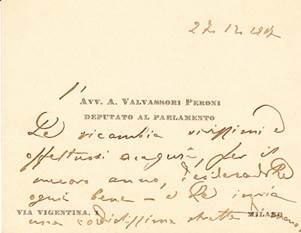 27 12 1907
l'
AVV. A. VALVASSORI PERONI
DEPUTATO AL PARLAMENTO
Le ricambia vivissimi e
affettuosi auguri, per il
nuovo anno, desiderandole
ogni bene – e Le invia
VIA VIGENTINA, 1 MILANO
una cordialissima stretta di mano